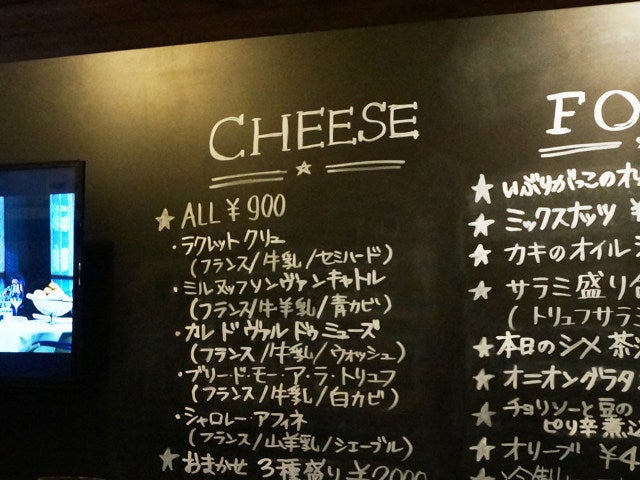 CHEESE
★ ALL ¥900
・ラクレット クリュ
(フランス/牛乳/セミハード)
・ミルヌッフソンヴァンキャトル
(フランス/牛羊乳/青カビ)
・カレ ド ヴァル ドゥ ミューズ
(フランス/牛乳/ウォッシュ)
・ブリード・モー・ア・ラ・トリュフ
(フランス/牛乳/白カビ)
・シャロレー・アフィネ
(フランス/山羊乳/シェーブル)
★ おまかせ 3種盛り ¥2000
FO
★ いぶりがっこのオ
★ ミックスナッツ ¥
★ カキのオイル
★ サラミ盛り
(トリュフサラミ
★ 本日のシメ 茶
★ オニオングラタ
★ チョリソーと豆の
ピリ辛煮込
★ オリーブ ¥4
★ 冷製